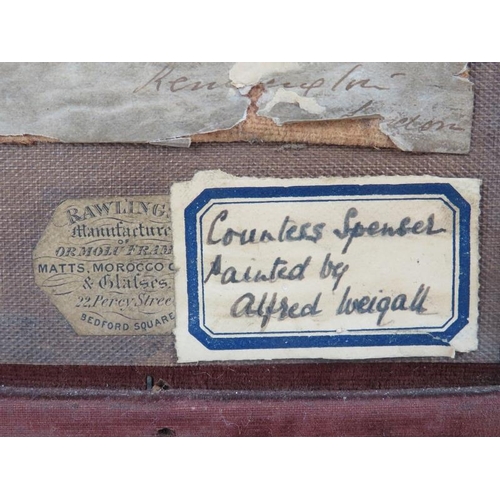 Kennington
London
RAWLINGS
Manufacture
OF
ORMOLU FRAM
MATTS, MOROCCO C
& Glasses
22, Percy Stree
BEDFORD SQUARE
Countess Spenser
Painted by
Alfred Weigall